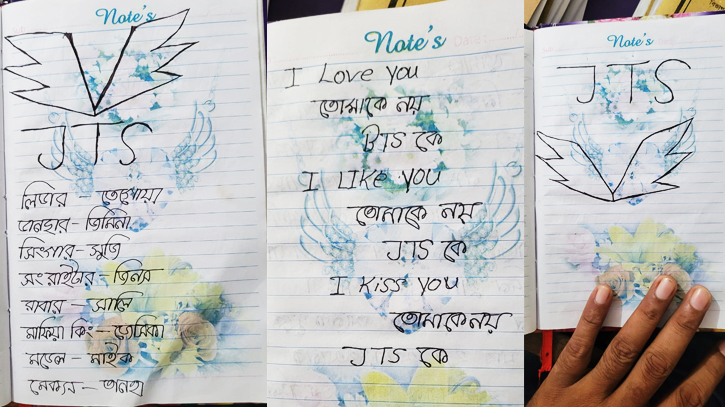 Note's
JTS
লিডার - তোয়া
ডানডার - জিনিনী
সিংগার - সুজি
সং রাইটার - জিনর
রাবার - সালি
মাফিয়া কিং - জেসিকা
মডেল - মাইক
মেকার - তানহা
Note's
I Love you
তোমাকে নয়
BTS কে
I Like you
তোমাকে নয়
JTS কে
I Kiss you
তোমাকে নয়
JTS কে
Note's
JTS